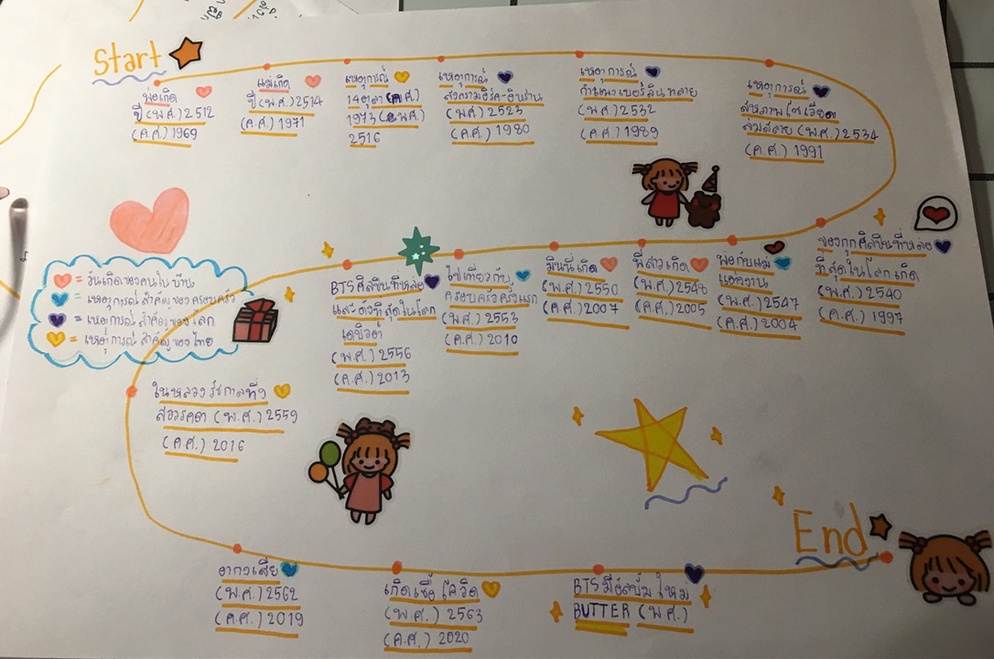 Start
พ่อเกิด
ปี(พ.ศ.) 2512
(ค.ศ.) 1969
แม่เกิด
ปี(พ.ศ.) 2514
(ค.ศ.) 1971
เหตุการณ์
14ตุลา (ค.ศ.)
1973 (พ.ศ.)
2516
เหตุการณ์
สงครามอิรัก-อิหร่าน
(พ.ศ) 2523
(ค.ศ.) 1980
เหตุการณ์
กำแพงเบอร์ลินทลาย
(พ.ศ.) 2532
(ค.ศ.) 1989
เหตุการณ์
สหภาพโซเวียต
ล่มสลาย (พ.ศ.) 2534
(ค.ศ.) 1991
จองกุกศิลปินที่หล่อ
ที่สุดในโลกเกิด
(พ.ศ.) 2540
(ค.ศ.) 1997
พ่อกับแม่
แต่งงาน
(พ.ศ.) 2547
(ค.ศ.) 2004
พี่สาวเกิด
(พ.ศ.) 2548
(ค.ศ.) 2005
มินนี่เกิด
(พ.ศ.) 2550
(ค.ศ.) 2007
ไปเที่ยวกับ
ครอบครัวครั้งแรก
(พ.ศ.) 2553
(ค.ศ.) 2010
BTSศิลปินที่หล่อ
และดังที่สุดในโลก
เดบิวต์
(พ.ศ.) 2556
(ค.ศ.) 2013
= วันเกิดของคนในบ้าน
= เหตุการณ์สำคัญของครอบครัว
= เหตุการณ์สำคัญของโลก
= เหตุการณ์สำคัญของไทย
ในหลวงรัชกาลที่9
สวรรคต (พ.ศ.) 2559
(ค.ศ.) 2016
อากงเสีย
(พ.ศ.) 2562
(ค.ศ.) 2019
เกิดเชื้อโควิด
(พ.ศ.) 2563
(ค.ศ.) 2020
BTSมีอัลบั้มใหม่
BUTTER (พ.ศ.)
End